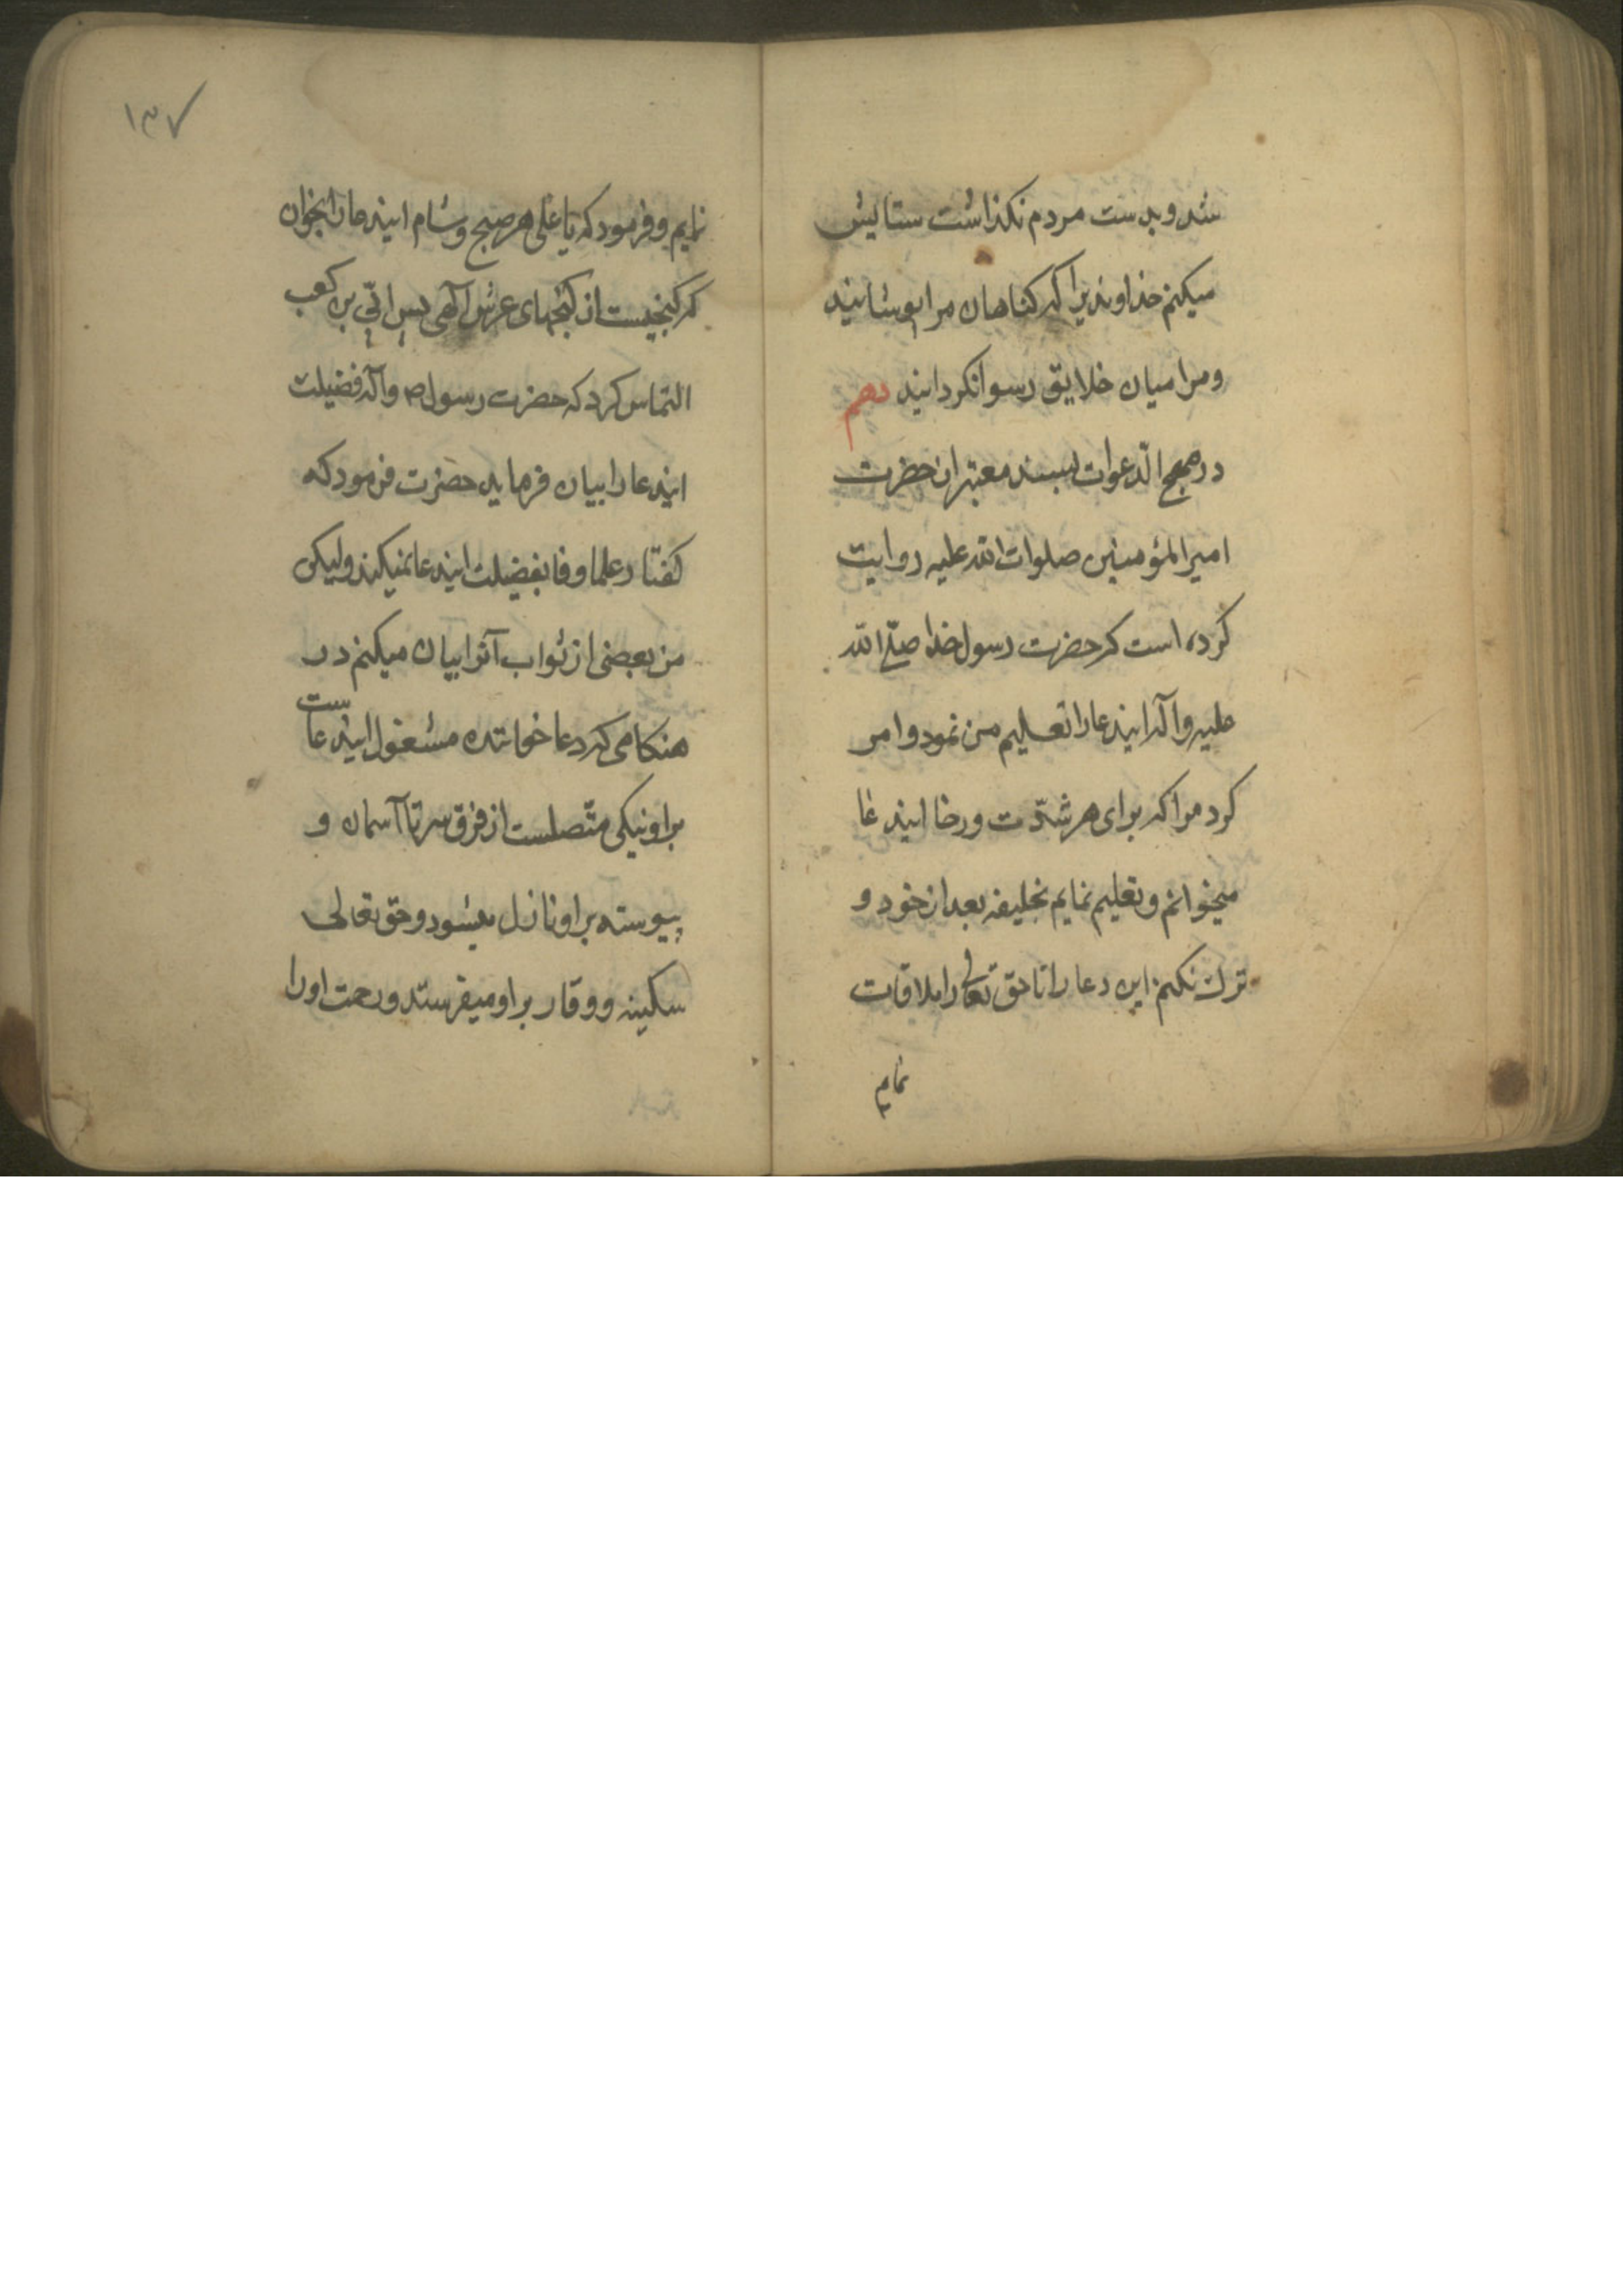 شد و بدست مردم نکذاشت ستایش
میکنم خداوندیرا که کناهان مرا پوشانید
و مرا میان خلایق رسوا نکردانید دهم
در مهج الدّعوات بسند معتبر از حضرت
امیرالمؤمنین صلوات الله علیه روایت
کرده است که حضرت رسول خدا صلّی الله
علیه وآله ایندعا را تعلیم من نمود و امر
کرد مرا که برای هر شدّت و رخا ایندعا
میخوانم و تعلیم نمایم بخلیفه بعد از خود و
ترك نکنم این دعا را تا حق تعالی را ملاقات
نمایم
۱۳۷
نمایم و فرمود که یا علی هر صبح و شام ایندعا را بخوان
که کنجیست از کنجهای عرش آلهی پس ابیّ بن کعب
التماس کرد که حضرت رسول ص وآله فضیلت
ایندعا را بیان فرماید حضرت فرمود که
کفتار علما وفا بفضیلت ایندعا نمیکند ولیکن
من بعضی از ثواب آنرا بیان میکنم در
هنکامی که دعا خواننده مشغول ایندعاست
بر او نیکی متّصلست از فرق سر تا آسمان و
پیوسته بر او نازل میشود و حق تعالی
سکینه و وقار بر او میفرستد و رحمت او را